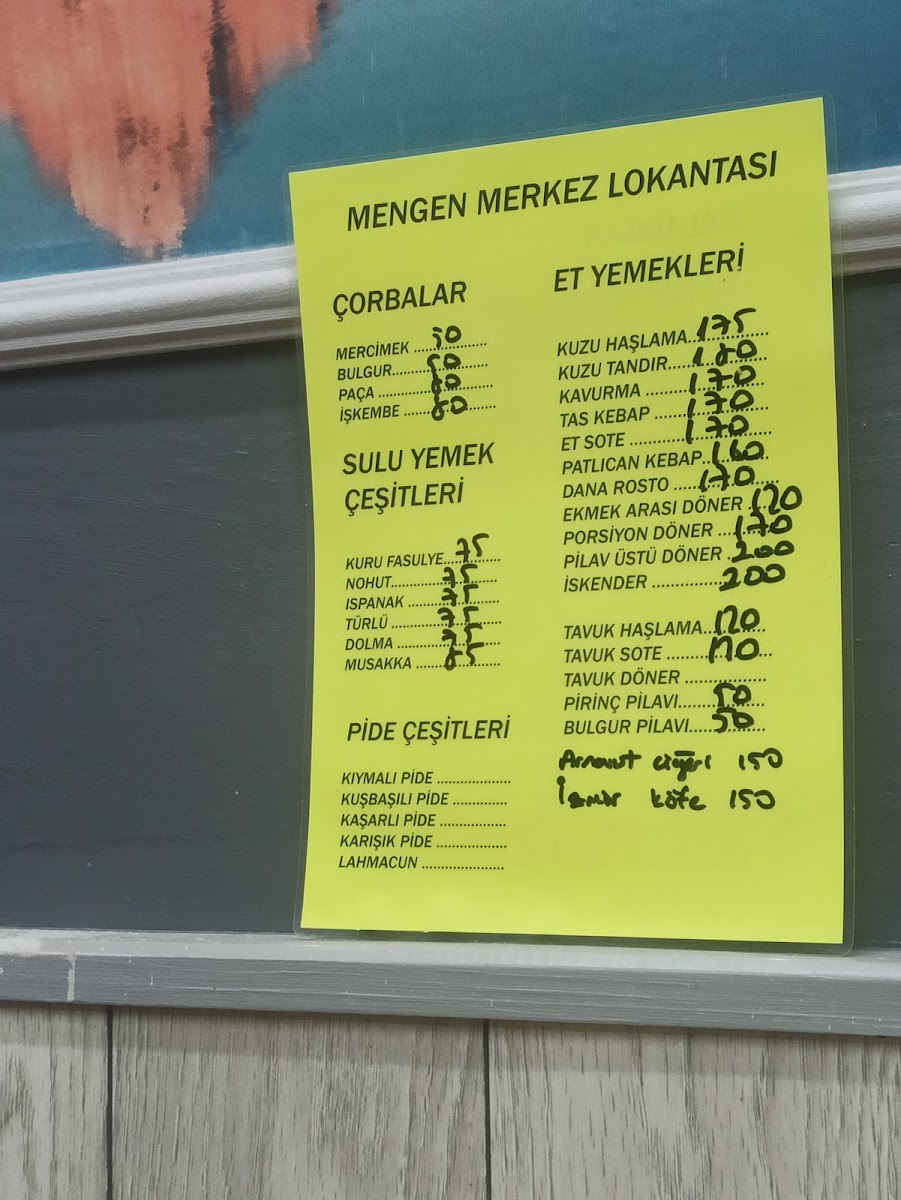 MENGEN MERKEZ LOKANTASI
ÇORBALAR
MERCİMEK ............... 50
BULGUR.................. 50
PAÇA .................... 80
İŞKEMBE ................ 80
SULU YEMEK
ÇEŞİTLERİ
KURU FASULYE... 75
NOHUT............. 75
ISPANAK ............ 75
TÜRLÜ ............. 75
DOLMA ............. 75
MUSAKKA ........... 85
PİDE ÇEŞİTLERİ
KIYMALI PİDE ..................
KUŞBAŞILI PİDE .............
KAŞARLI PİDE ................
KARIŞIK PİDE .................
LAHMACUN ....................
ET YEMEKLERİ
KUZU HAŞLAMA.. 175
KUZU TANDIR... 180
KAVURMA ........ 170
TAS KEBAP ...... 170
ET SOTE .......... 170
PATLICAN KEBAP.. 160
DANA ROSTO ..... 170
EKMEK ARASI DÖNER 120
PORSİYON DÖNER ... 170
PİLAV ÜSTÜ DÖNER . 200
İSKENDER ............... 200
TAVUK HAŞLAMA.. 120
TAVUK SOTE ........
TAVUK DÖNER ................
PİRİNÇ PİLAVI....... 50
BULGUR PİLAVI..... 50
Arnavut ciğeri 150
İzmir köfe 150